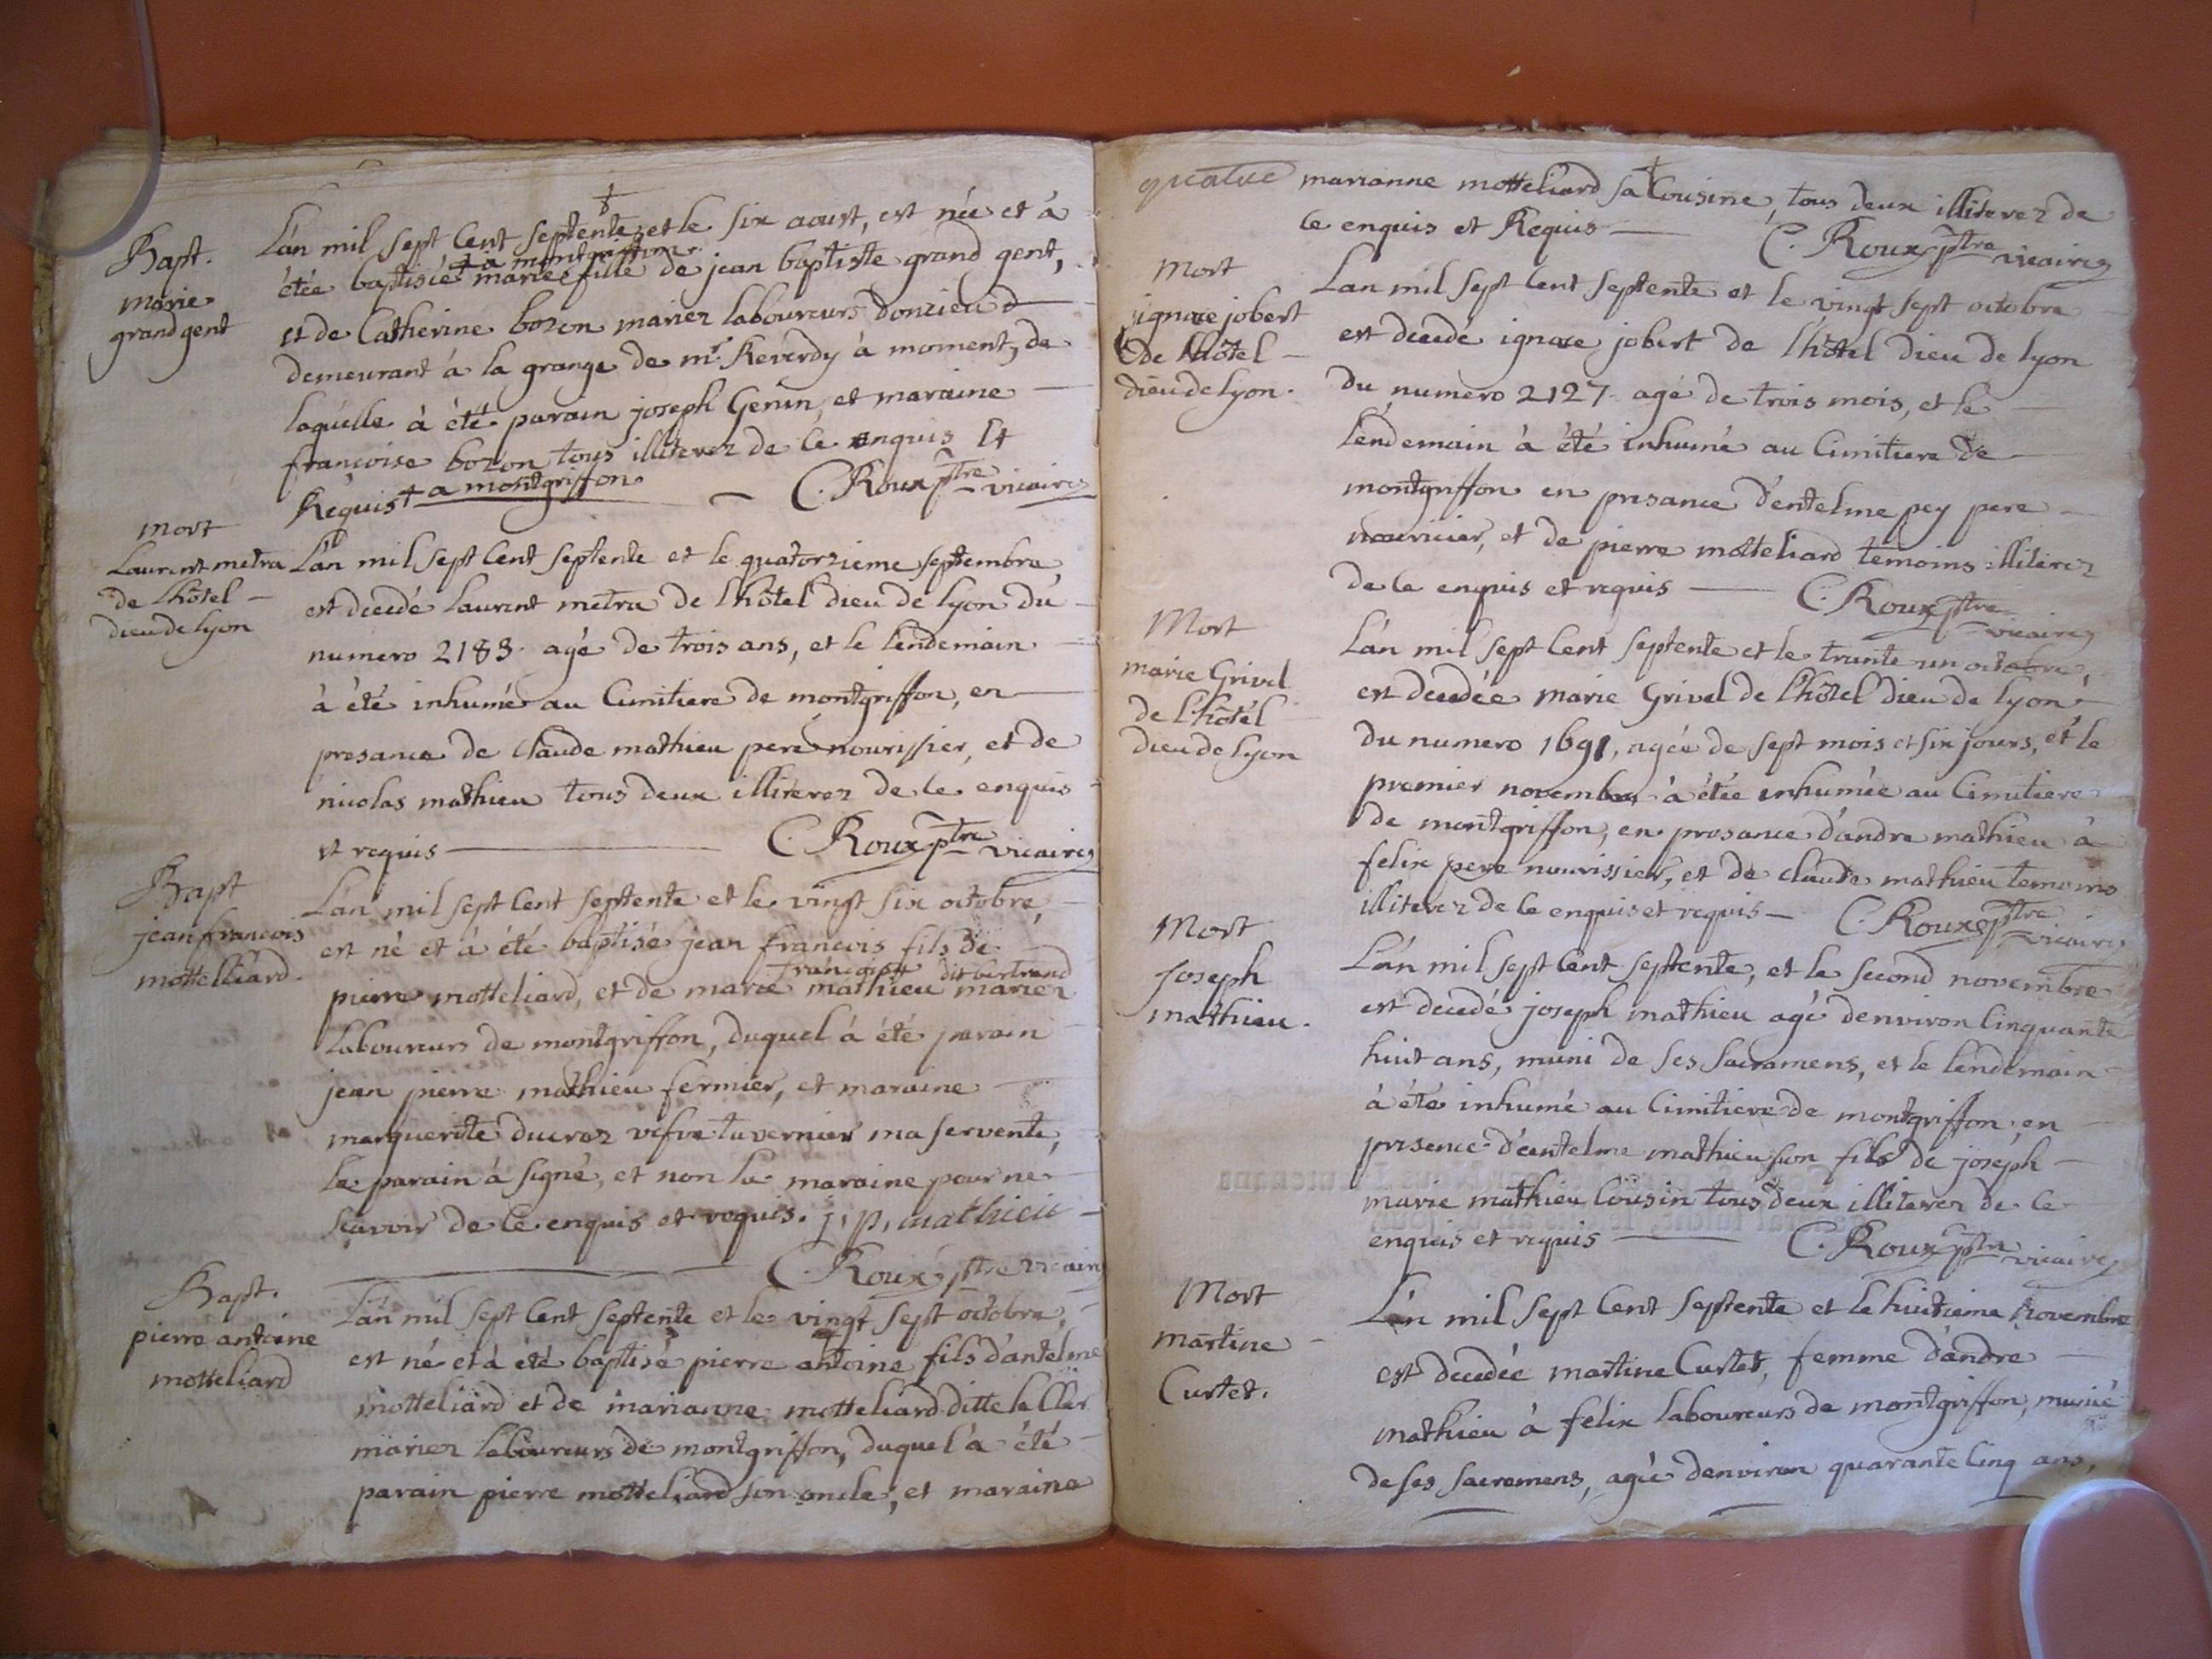 Bapt.
marie
grand gent
L'an mil sept Cent septente et le six aoust, est née et à
a montgriffon
étée baptisée + marie fille de jean baptiste grand gent,
et de Catherine bozon mariez laboureurs doncieu
demeurant à la grange de mr. Reverdy à moment, de
laquelle à été parain joseph Genin, et maraine
françoise bozon tous illiterez de ce enquis et
Requis + a montgriffon C. Roux ptre vicaire
mort
Laurent metra
de l'hôtel
dieu de lyon
L'an mil sept Cent septente et le quatorzieme septembre
est decedé laurent metra de l'hôtel dieu de lyon du
numero 2183. agé de trois ans, et le lendemain
à été inhumé au Cimitiere de montgriffon, en
presance de claude mathieu pere nourissier, et de
nicolas mathieu tous deux illiterez de ce enquis
et requis C. Roux ptre vicaire
Bapt
jean francois
motteliard.
L'an mil sept Cent septente et le vingt six octobre,
est né et à été baptisé jean francois fils de
françoise dit bertrand
pierre motteliard, et de marie mathieu mariez
laboureurs de montgriffon, duquel à été parain
jean pierre mathieu fermier, et maraine
marguerite ducroz vefve tavernier ma servente,
le parain à signé, et non la maraine pour ne
scavoir de ce enquis et requis. j, p, mathieu
C. Roux ptre vicaire
Bapt.
pierre antoine
motteliard
L'an mil sept Cent septente et le vingt sept octobre,
est né et à été baptisé pierre antoine fils d'antelme
motteliard et de marianne motteliard ditte
mariez laboureurs de montgriffon, duquel à été
parain pierre motteliard son oncle, et maraine
quatre
marianne motteliard sa Cousine, tous deux illiterez de
ce enquis et Requis C. Roux ptre vicaire
Mort
ignace jobert
de l'hôtel
dieu de lyon.
L'an mil sept Cent septente et le vingt sept octobre
est decedé ignace jobert de l'hôtel dieu de lyon
du numero 2127. agé de trois mois, et le
lendemain à été inhumé au Cimitiere de
montgriffon en presance d'entelme pey pere
nourricier, et de pierre motteliard temoins illiterez
de ce enquis et requis C. Roux ptre vicaire
Mort
marie Grivel
de l'hôtel
dieu de lyon
L'an mil sept Cent septente et le trente un octobre,
est decedée marie Grivel de l'hôtel dieu de lyon
du numero 1691, agée de sept mois et six jours, et le
premier novembre à étée inhumée au Cimitiere
de montgriffon, en presance d'andre mathieu à
felix pere nourissier, et de claude mathieu temoins
illiterez de ce enquis et requis C. Roux ptre vicaire
Mort
joseph
mathieu.
L'an mil sept Cent septente, et le second novembre
est decedé joseph mathieu agé denviron Cinquante
huit ans, muni de ses sacramens, et le lendemain
à été inhumé au Cimitiere de montgriffon, en
presence d'entelme mathieu son fils de joseph
marie mathieu Cousin tous deux illiterez de ce
enquis et requis C. Roux ptre vicaire
Mort
martine
Curtet.
L'an mil sept Cent septente et le huitieme Novembre
est decedée martine Curtet, femme d'andre
mathieu à felix laboureurs de montgriffon, munie
de ses sacremens, agée denviron quarante Cinq ans,